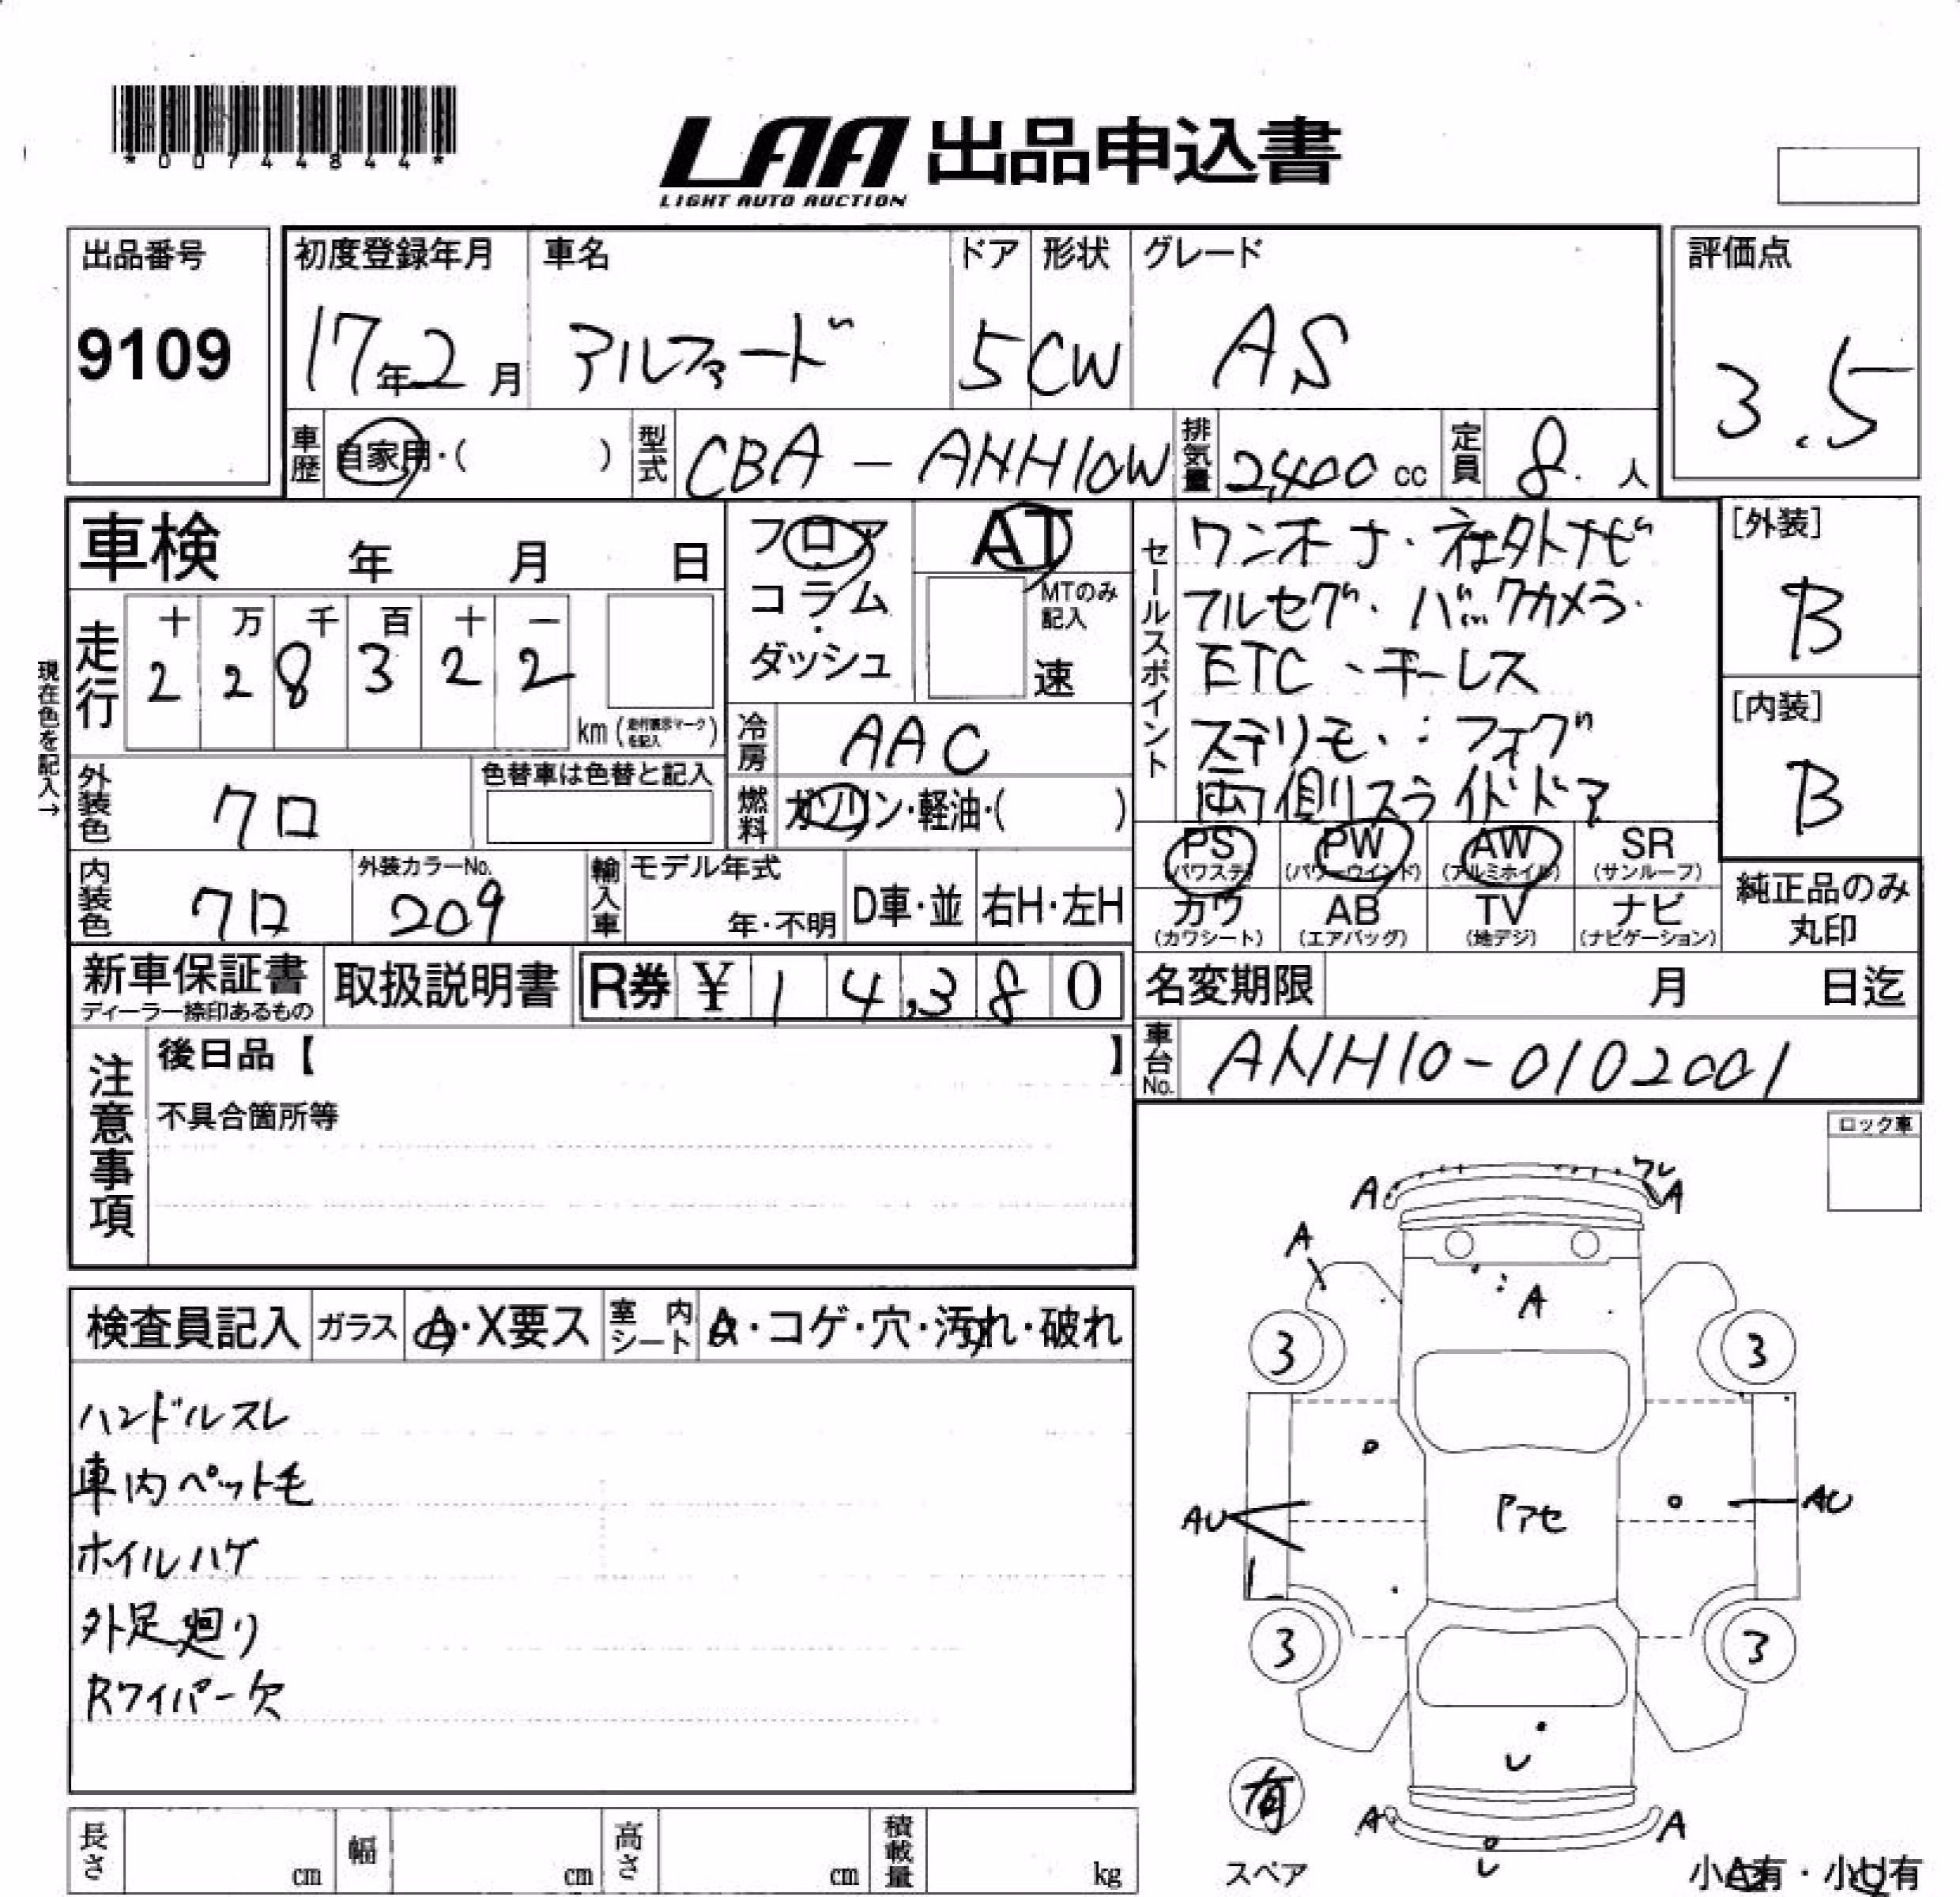 *00744844*
LAA 出品申込書
LIGHT AUTO AUCTION
出品番号
9109
初度登録年月
17年2月
車名
アルファード
ドア
5
形状
CW
グレード
AS
評価点
3.5
車歴
自家用・( )
型式
CBA-ANH10W
排気量
2,400 cc
定員
8 人
車検 年 月 日
フロア・コラム・ダッシュ
AT
MTのみ記入
速
セールスポイント
ワンオーナ・社外ナビ
フルセグ・バックカメラ・
ETC・キーレス
ステリモ・フォグ
両側スライドドア
[外装]
B
[内装]
B
現在色を記入→
走行
十 万 千 百 十 一
2 2 8 3 2 2
km (走行表示マークを記入)
冷房
AAC
外装色
クロ
色替車は色替と記入
燃料
ガソリン・軽油・( )
PS (パワステ) PW (パワーウインド) AW (アルミホイル) SR (サンルーフ)
カワ (カワシート) AB (エアバッグ) TV (地デジ) ナビ (ナビゲーション)
純正品のみ丸印
内装色
クロ
外装カラーNo.
209
輸入車
モデル年式
年・不明
D車・並
右H・左H
新車保証書
ディーラー捺印あるもの
取扱説明書
R券 ¥ 14,380
名変期限 月 日迄
車台No.
ANH10-0102001
注意事項
後日品【 】
不具合箇所等
ロック車
検査員記入
ガラス
A・X要ス
室内シート
A・コゲ・穴・汚れ・破れ
ハンドルスレ
車内ペット毛
ホイルハゲ
外足廻り
Rワイパー欠
ワレ
A A
A
A
3 3
AU AU
3 3
U
有
スペア
A A
U
小A有・小U有
長さ cm
幅 cm
高さ cm
積載量 kg